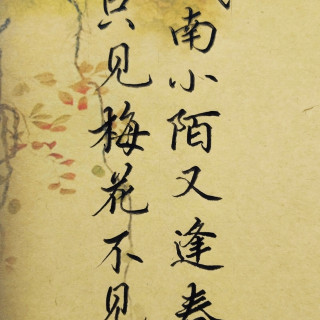 南小陌又逢春
只见梅花不见